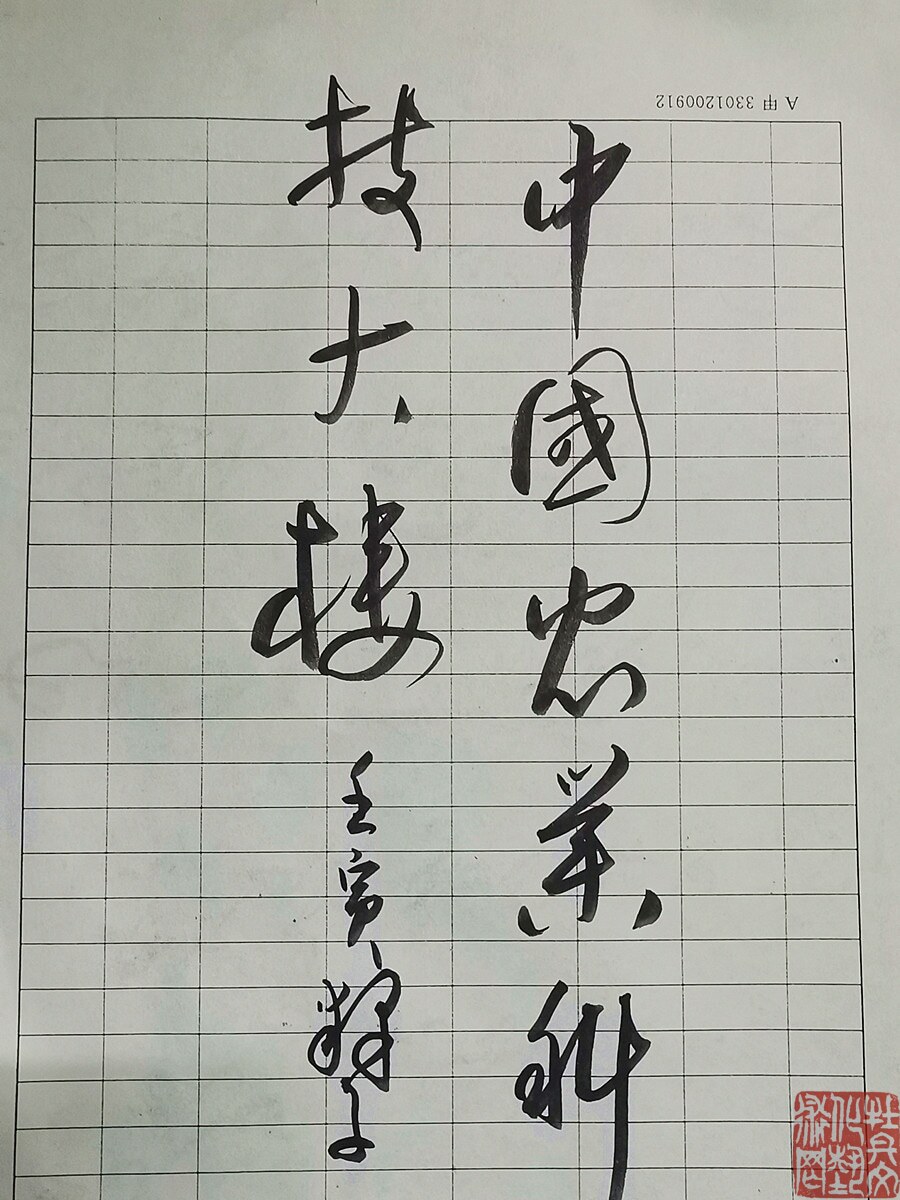 A 甲 3301200912
中國农業科
技大樓
壬寅釋子